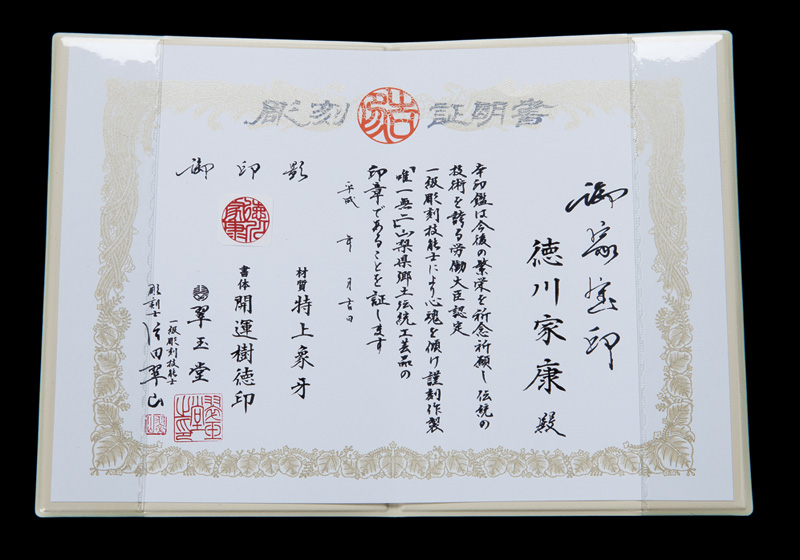 彫刻 証明書
御家宝印
徳川家康 殿
本印鑑は今後の繁栄を祈念祈願し伝統の
技術を誇る労働大臣認定
一級彫刻技能士により心魂を傾け謹刻作製
「唯一無二」山梨県郷土伝統工芸品の
印章であることを証します
平成 年 月吉日
御印影
材質 特上象牙
書体 開運樹徳印
翠玉堂
一級彫刻技能士
彫刻士 田翠山